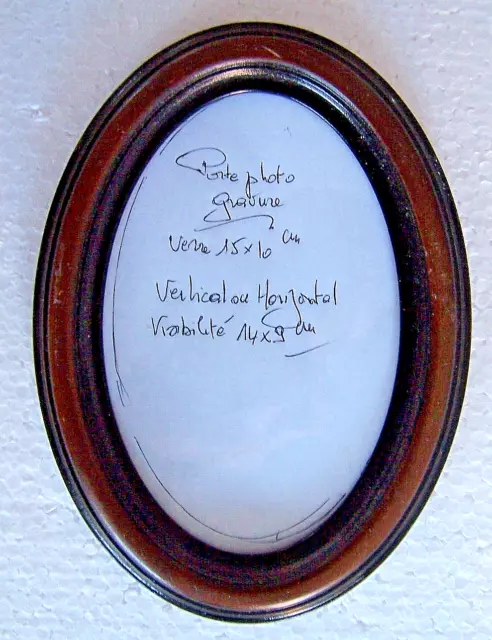 Porte photo
gravure
Verre 15x10 cm
Vertical ou Horizontal
Visibilité 14x9 cm